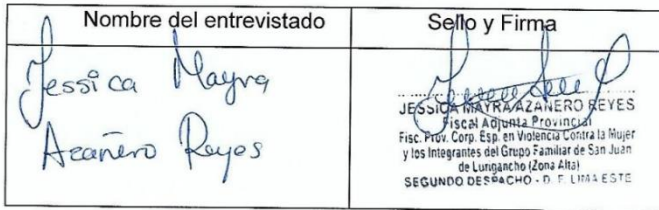 Nombre del entrevistado
Sello y Firma
Jessica Mayra
Azañero Reyes
JESSICA MAYRA AZAÑERO REYES
Fiscal Adjunta Provincial
Fisc. Prov. Corp. Esp. en Violencia Contra la Mujer
y los Integrantes del Grupo Familiar de San Juan
de Lurigancho (Zona Alta)
SEGUNDO DESPACHO - D. F. LIMA ESTE